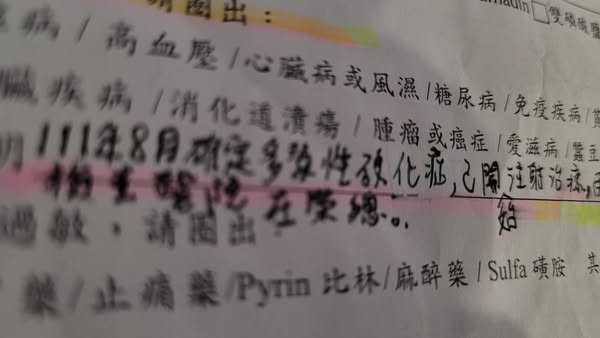 請圈出：
nadin□雙磷酸鹽
病 / 高血壓 / 心臟病或風濕 / 糖尿病 / 免疫疾病 /
臟疾病 / 消化道潰瘍 / 腫瘤或癌症 / 愛滋病 / 蠶豆
明 111年8月確定多發性硬化症,已開始注射治療,
醫院在聯絡。
過敏，請圈出
藥 / 止痛藥 / Pyrin 比林 / 麻醉藥 / Sulfa 磺胺 其